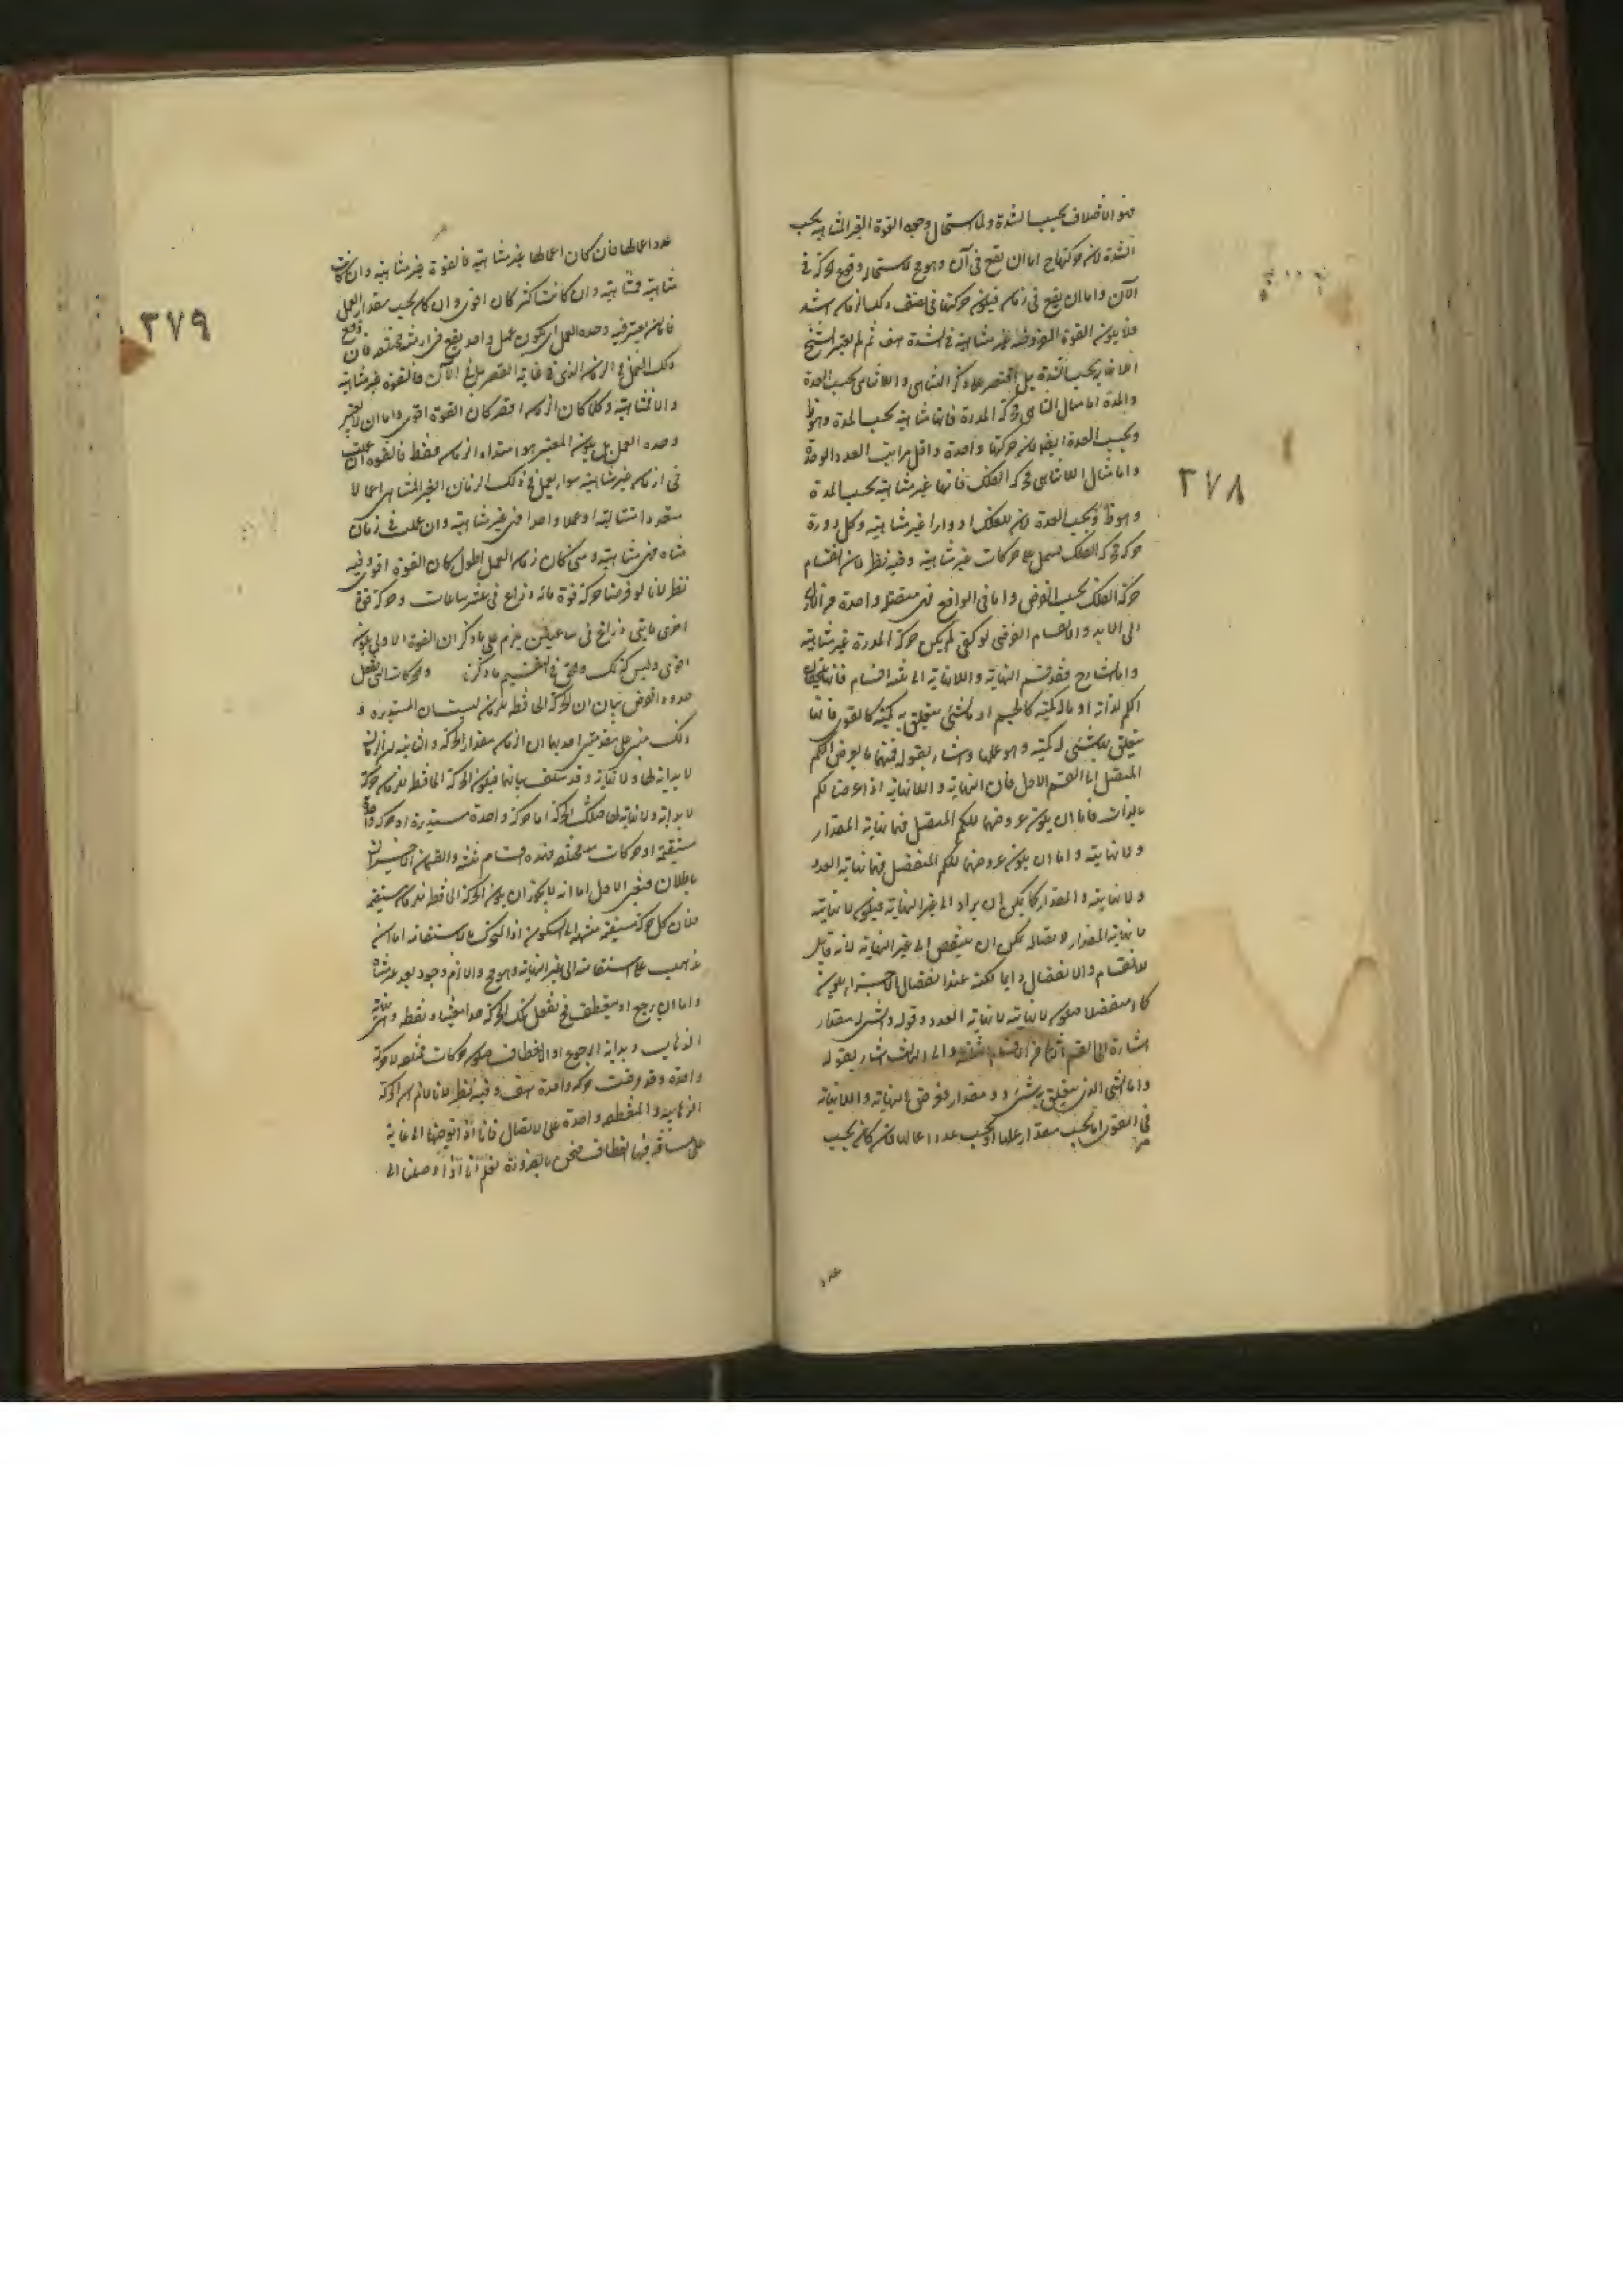 ٣٧٨
فهو الاختلاف بحسب الشدة ولما استحال وجود القوة الغير المتناهية بحسب
الشدة لان حركتها ح اما ان تقع في آن وهو مح لاستحالة وقوع الحركة في
الآن واما ان يقع في زمان فيكون حركتها في نصف ذلك الزمان اشد
فلا يكون القوة المفروضة غير متناهية في الشدة هف ثم لم يعتبر الشيخ
بحسب الشدة بل اقتصر على ذكر التناهي واللاتناهي بحسب العدة
والمدة اما مثال التناهي فحركة المدرة فانها متناهية بحسب المدة وهو ظ
وبحسب العدة ايضا لان حركتها واحدة واقل مراتب العدد الوحدة
واما مثال اللاتناهي فحركة الفلك فانها غير متناهية بحسب المدة
وهو ظ وبحسب العدة لان للفلك ادوارا غير متناهية وكل دورة
حركة فحركة الفلك تشتمل على حركات غير متناهية وفيه نظر لان انقسام
حركة الفلك بحسب الفرض واما في الواقع فهي متصلة واحدة من الازل
الى الابد والانقسام الفرضي لو كفى لم يكن حركة المدرة غير متناهية
واما الشارح فقد قسم النهاية واللانهاية الى ثلثة اقسام فانها
الكم لذاته او ما له كمية كالجسم او لشئ يتعلق به كمية كالقوى فانها
يتعلق بشئ له كمية وهو عملها واشار بقوله فمنها ما يعرض للكم
المتصل الى القسم الاول فان النهاية واللانهاية اذا عرضتا للكم
بالذات فاما ان يكون عروضهما للكم المتصل فهما نهاية المقدار
ولا نهايته واما ان يكون عروضهما للكم المنفصل فهما نهاية العدد
ولا نهايته والمقدار كما يمكن ان يزاد الى غير النهاية فيكون لا نهايته
لا نهاية المقدار لاتصاله يمكن ان ينقص الى غير النهاية لانه قابل
للانقسام والانفصال دايما لكنه عند انفصال الاجزاء يكون
كما منفصلا فيكون لا نهايته لا نهاية العدد وقوله والشئ له مقدار
اشارة الى القسم الثاني من الاقسام الثلثة والى الثالث اشار بقوله
واما الشئ الذي يتعلق به شئ ذو مقدار فعرض النهاية واللانهاية
في القوى اما بحسب مقدار عملها او بحسب عدد اعمالها فان كان بحسب
عدد
٣٧٩
عدد اعمالها فان كان اعمالها غير متناهية فالقوة غير متناهية وان كانت
متناهية فمتناهية وان كانت اكثر كان اقوى وان كان بحسب مقدار العمل
فاما ان اعتبر فيه وحدة العمل اي يكون عمل واحد يقع في ازمنة مختلفة فان وقع
ذلك العمل في الزمان الذي في غاية القصر بل في الآن فالقوة غير متناهية
والا فمتناهية وكلما كان الزمان اقصر كان القوة اقوى واما ان لا يعتبر
وحدة العمل بل يكون المعتبر هو امتداد الزمان فقط فالقوة ان عملت
في ازمان غير متناهية سواء يعمل في ذلك الزمان الغير المتناهي اعمالا
متعددة متتالية او عملا واحدا فهي غير متناهية وان عملت في زمان
متناه فهي متناهية ومتى كان زمان العمل اطول كان القوة اقوى وفيه
نظر لانا لو فرضنا حركة قوة مائة ذراع في عشر ساعات وحركة قوة
اخرى مايتي ذراع في ساعتين يلزم على ما ذكر ان القوة الاولى يكون
اقوى وليس كذلك والحق في التقسيم ما ذكرنا والحركات التي تفعل
حدودا الغرض بيان ان الحركة الحافظة للزمان ليست الا المستديرة و
ذلك مبني على مقدمتين احديهما ان الزمان مقدار الحركة والثانية ان الزمان
لا بداية لها ولا نهاية وقد سلف بيانهما فيكون الحركة الحافظة للزمان حركة
لا بداية ولا نهاية لها فتلك الحركة اما حركة واحدة مستديرة او حركة واحدة
مستقيمة او حركات مختلفة فهذه اقسام ثلثة والقسمان الاخيران
باطلان فتعين الاول اما انه لا يجوز ان يكون الحركة الحافظة للزمان مستقيمة
فلان كل حركة مستقيمة منتهية الى السكون اذا المتحرك على الاستقامة اما ان
يذهب على استقامته الى غير النهاية وهو مح والا لزم وجود بعد غير متناه
واما ان يرجع او ينعطف فح تفعل تلك الحركة حدا معينا ونقطة هي نهاية
الذهاب وبداية الرجوع او الانعطاف فيكون حركات مختلفة لا حركة
واحدة وقد فرضت حركة واحدة هف وفيه نظر لانا لا نم ان الحركة
الذاهبة والمنعطفة واحدة على الاتصال فانا اذا توجهنا الى غاية
على مسافة فيها انعطاف فنحن بالضرورة نعلم انا اذا وصلنا الى